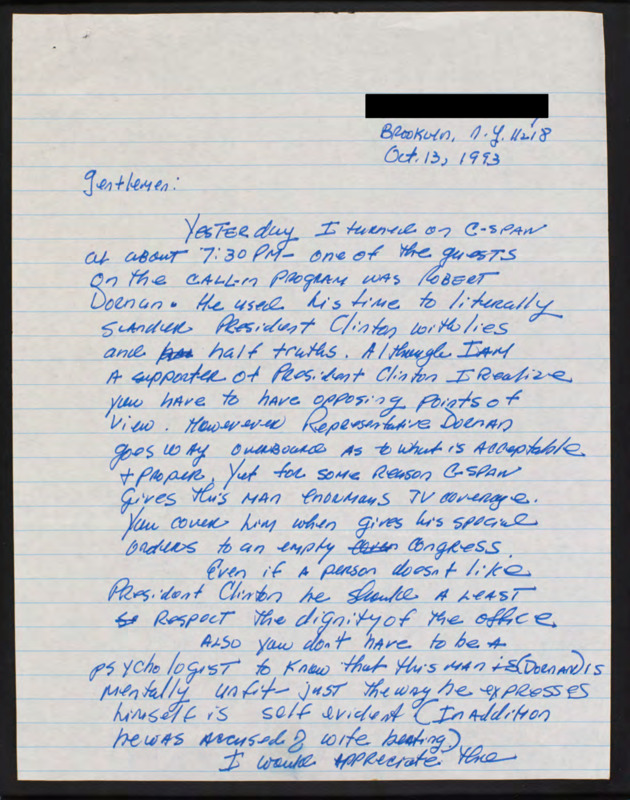 Brooklyn, N.Y. 11218
Oct. 13, 1993
Gentlemen:
Yesterday I turned on C-SPAN
at about 7:30 PM - one of the guests
on the call-in program was Robert
Dornan. He used his time to literally
slander President Clinton with lies
and half truths. Although I am
a supporter of President Clinton I realize
you have to have opposing points of
view. However Representative Dornan
goes way overbound as to what is acceptable
+ proper, yet for some reason C-SPAN
gives this man enormous TV coverage.
You cover him when gives his special
orders to an empty Congress.
Even if a person doesn't like
President Clinton he should a least
respect the dignity of the office
Also you don't have to be a
psychologist to know that this man is (Dornan) is
mentally unfit - just the way he expresses
himself is self evident (In addition
he was accused of wife beating)
I would appreciate the